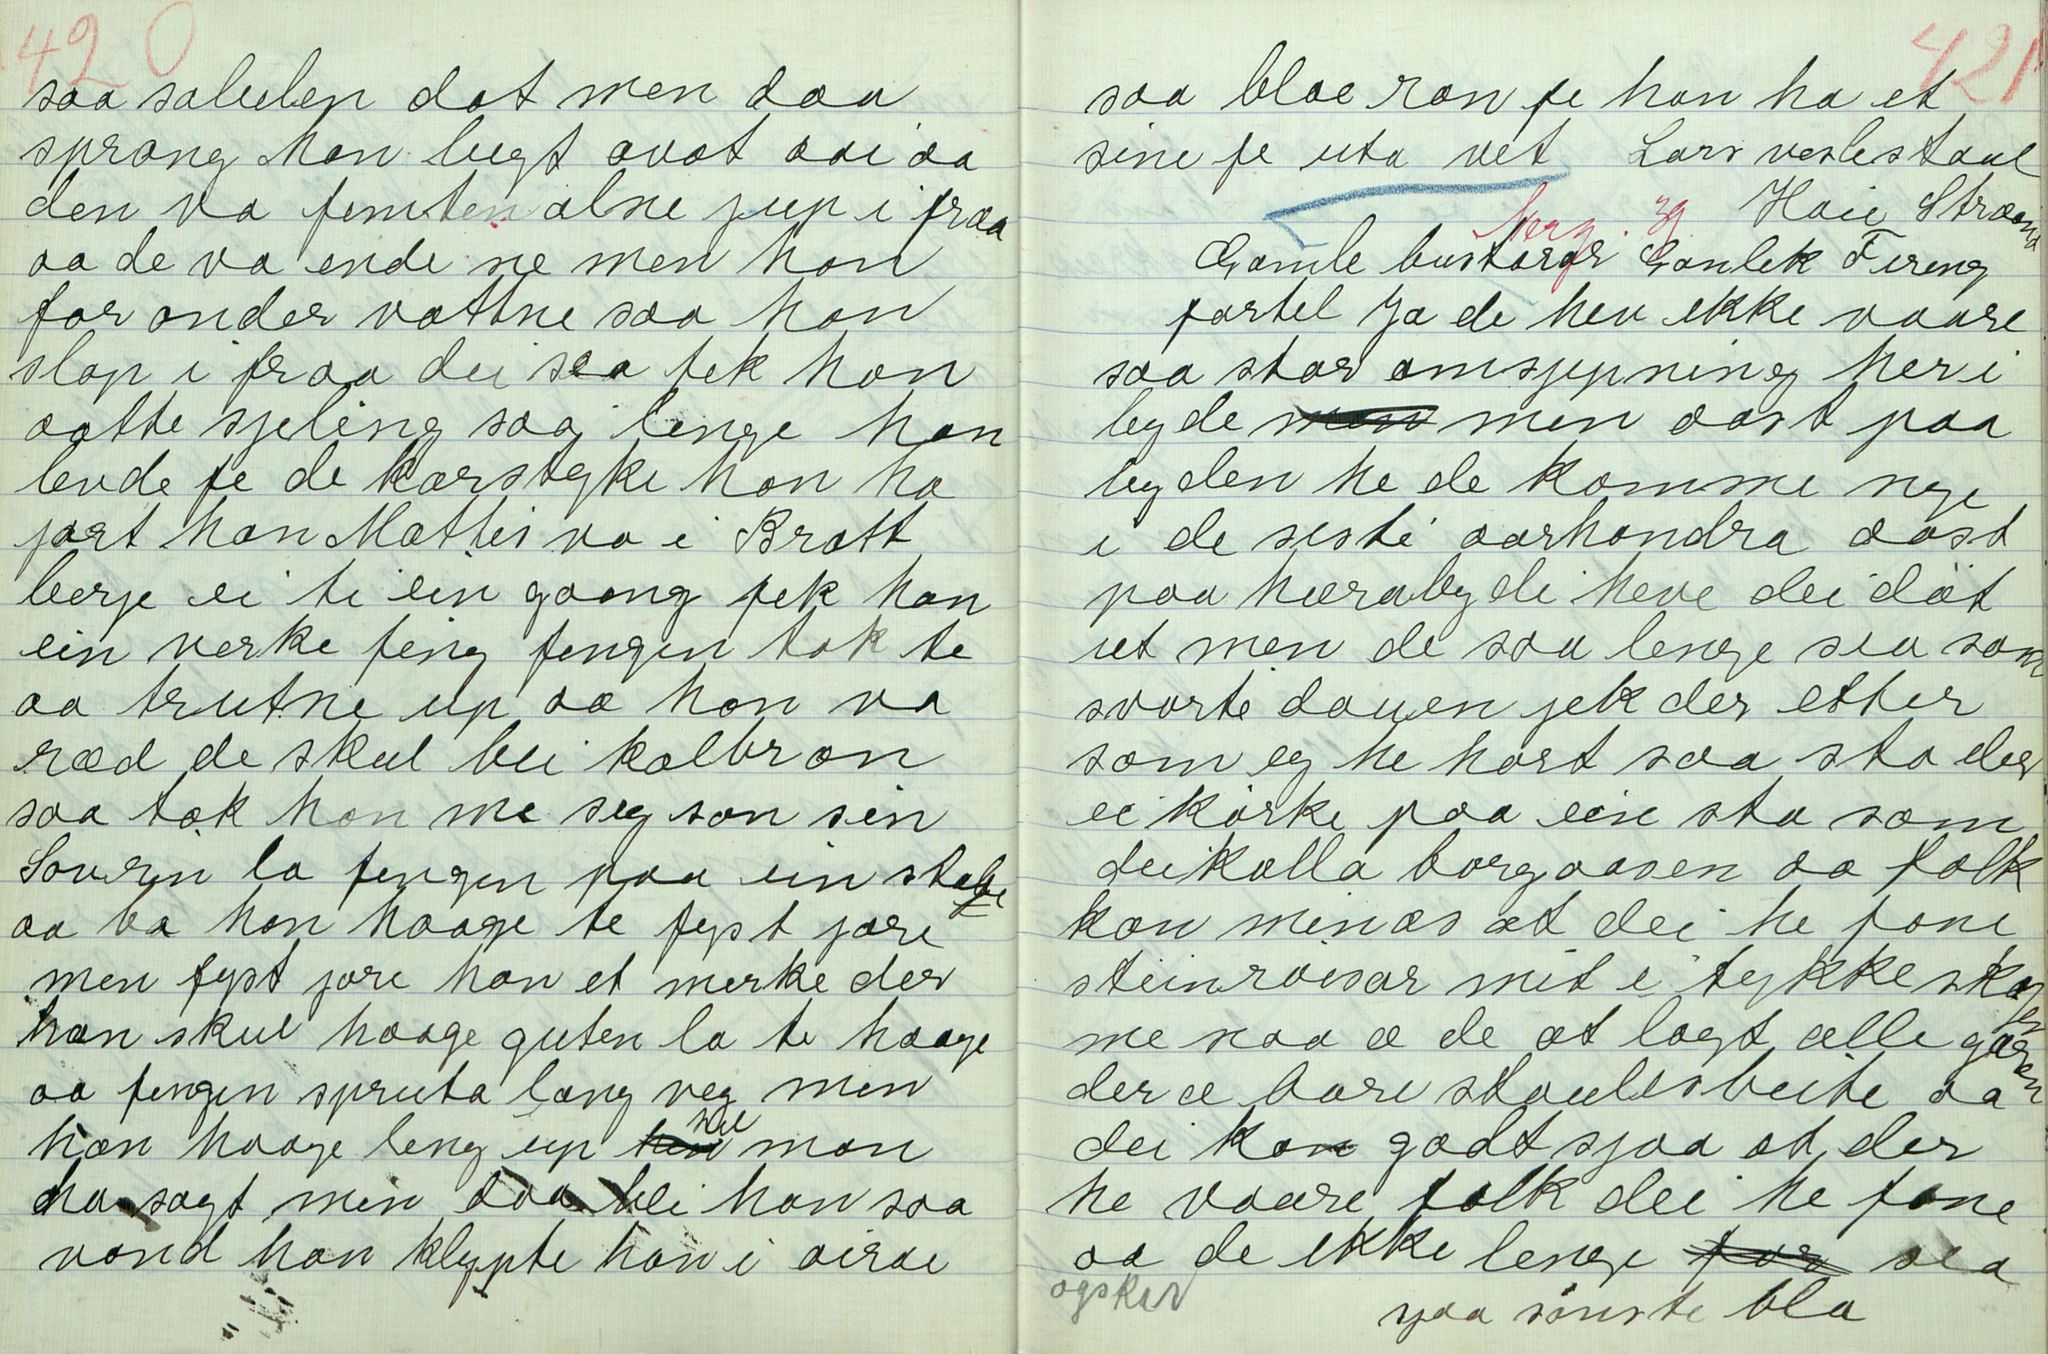 420
saa salulen dat men daa
sprang han bugt avat aai aa
den va femten alne jup i fraa
aa de va ende ne men han
for onder vattne saa han
slap i fraa dei sea fek han
aatte sjeling saa lenge han
levde fe de karstyke han ha
jort han Mattis va i Bratt
berje ei ti ein gaang fek han
ein verke fing fengen tok te
aa trutne up aa han va
ræd de skul bli kalbron
saa tok han me seg son sin
Sovren la fengen paa ein stabe
aa ba han haage te fyst jore
men fyst jore han et merke der
han skul haage guten la te haage
aa fengen spruta lang veg men
han haage leng up nel man
ha sagt men daa blei han saa
vond han klypte han i airae
421
saa blae ran fe han ha et
sine fe uta vet Lars veslestaul
Haie Straand
Norg. 39
Gamle bustarar Gonlek Fireng
fortel Ja de hev ikke vaare
saa star omsjepning her i
bygde men aast paa
bygden he de komme nye
i de siste aarhondra aast
paa herabygdi heve dei døt
ut men de saa lenge sia som
svarte dauen jek der etter
som eg he hort saa sto der
ei kørke paa ein sta som
dei kalla borgaasen aa folk
kan minas at dei he fone
steinroisar mit i tykke skaagen
me naa æ de at lagt alle garen
der æ bare staulsbeite aa
dei kan godt sjaa at der
he vaare folk dei he fone
aa de ikke lenge sia
ogsker
sjaa sinste bla